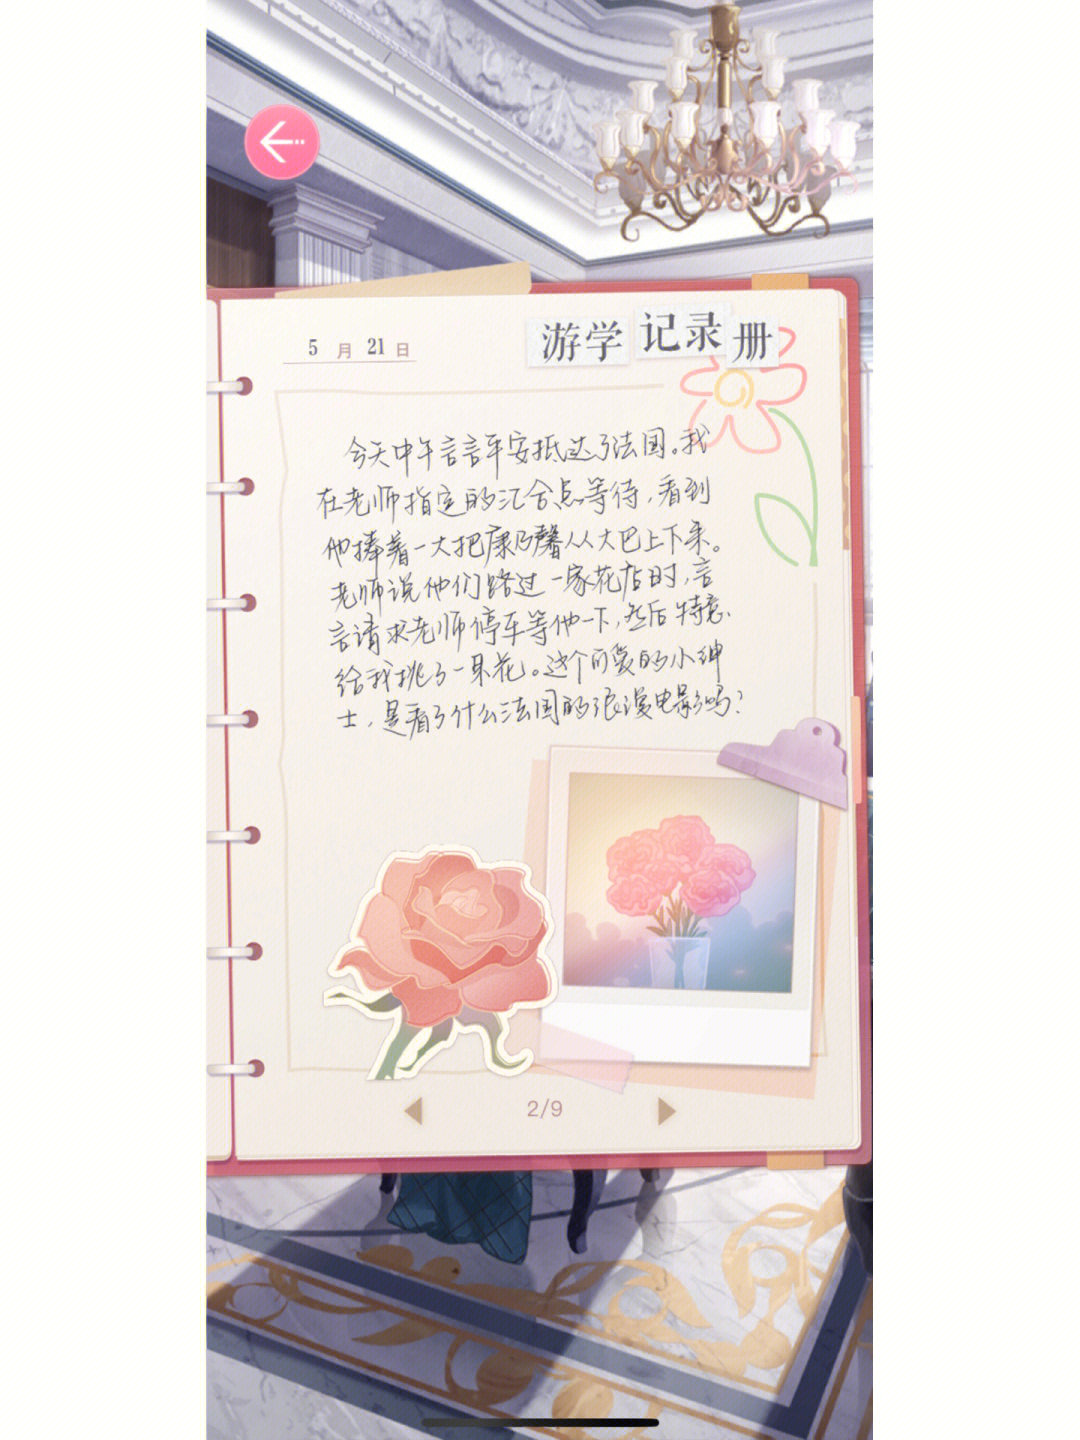 5 月 21 日
游学记录册
今天中午言言平安抵达了法国。我
在老师指定的汇合点等待，看到
他捧着一大把康乃馨从大巴上下来。
老师说他们路过一家花店时，言
言请求老师停车等他一下，然后特意
给我挑了一束花。这个可爱的小绅
士，是看了什么法国的浪漫电影吗？
2/9